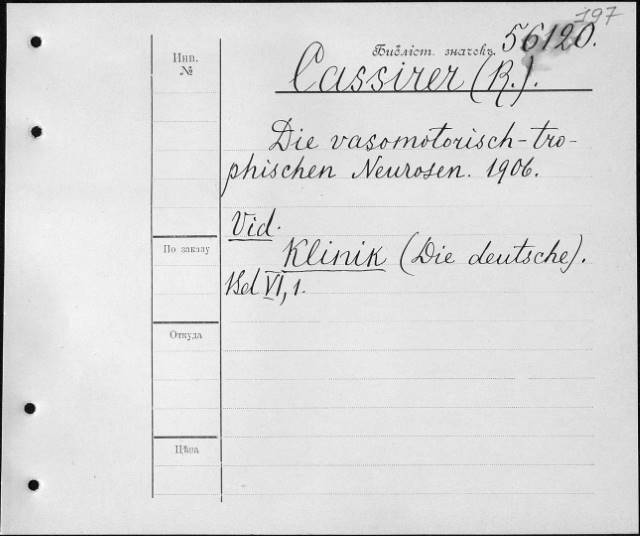 197
Инв.
№
Библіот. значокъ 56120.
Cassirer (R.).
Die vasomotorisch-tro-
phischen Neurosen. 1906.
Vid.
По заказу
Klinik (Die deutsche).
Bd VI, 1.
Откуда
Цѣна